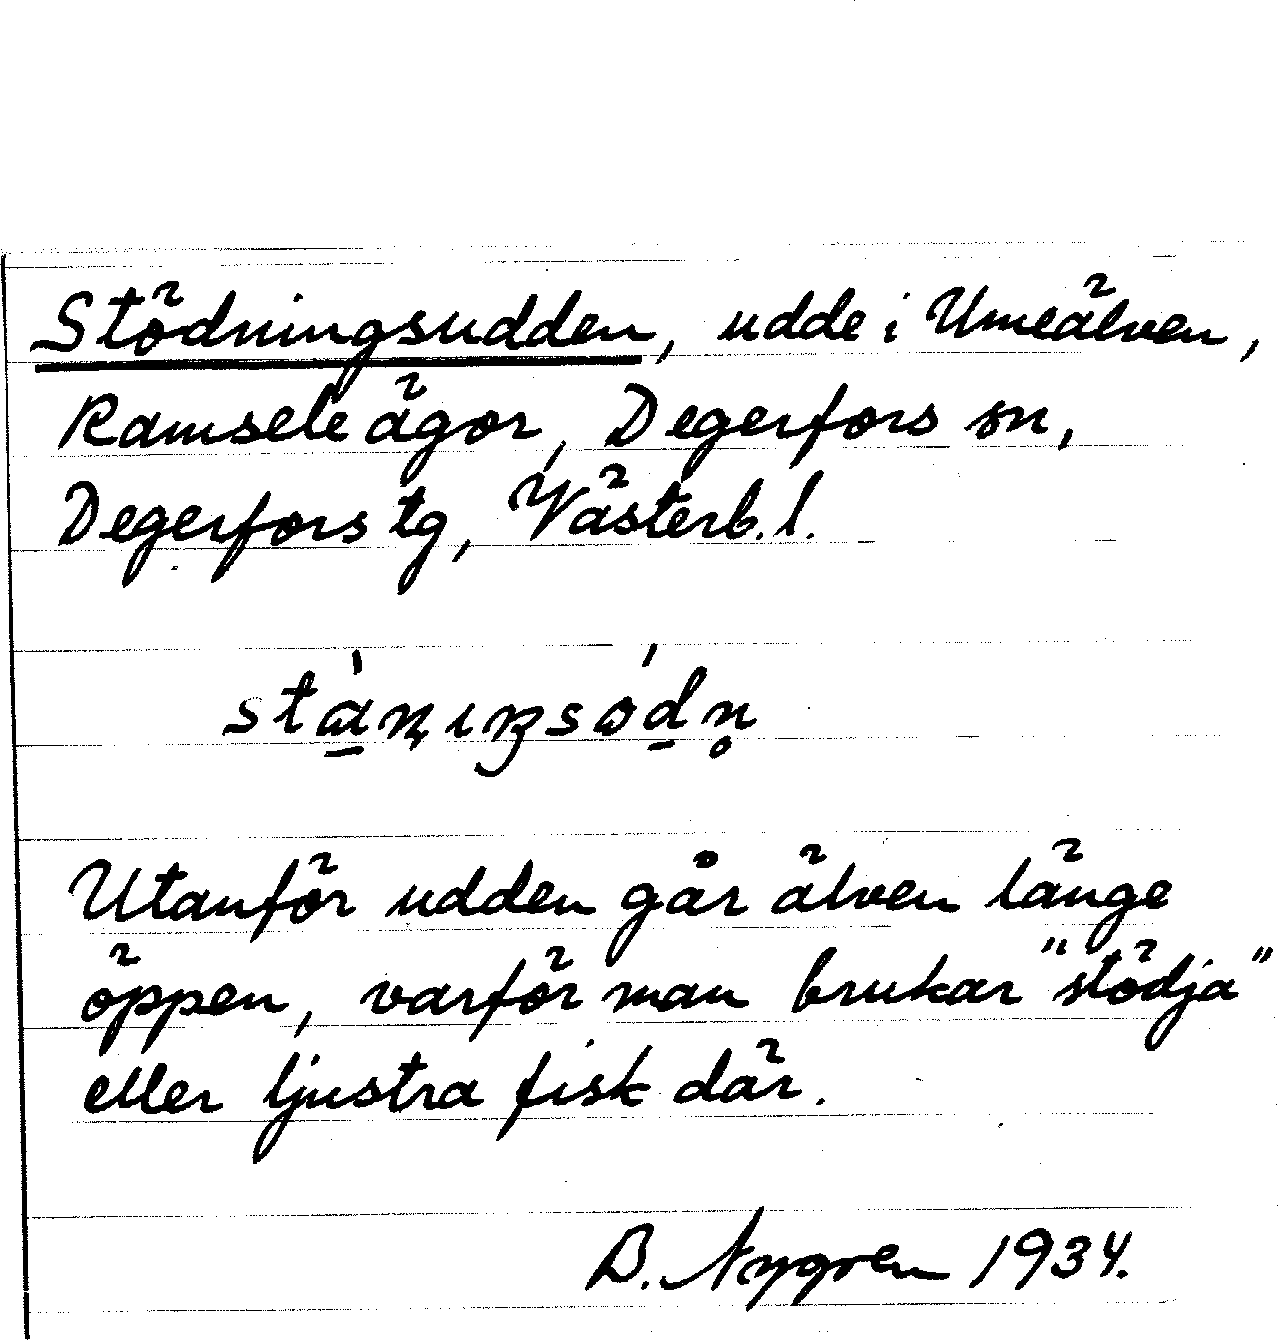 Stödningsudden, udde i Umeälven,
Ramsele ägor, Degerfors sn,
Degerfors tg, Västerb. l.
Utanför udden går älven länge
öppen, varför man brukar "stödja"
eller ljustra fisk där.
B. Nygren 1934.